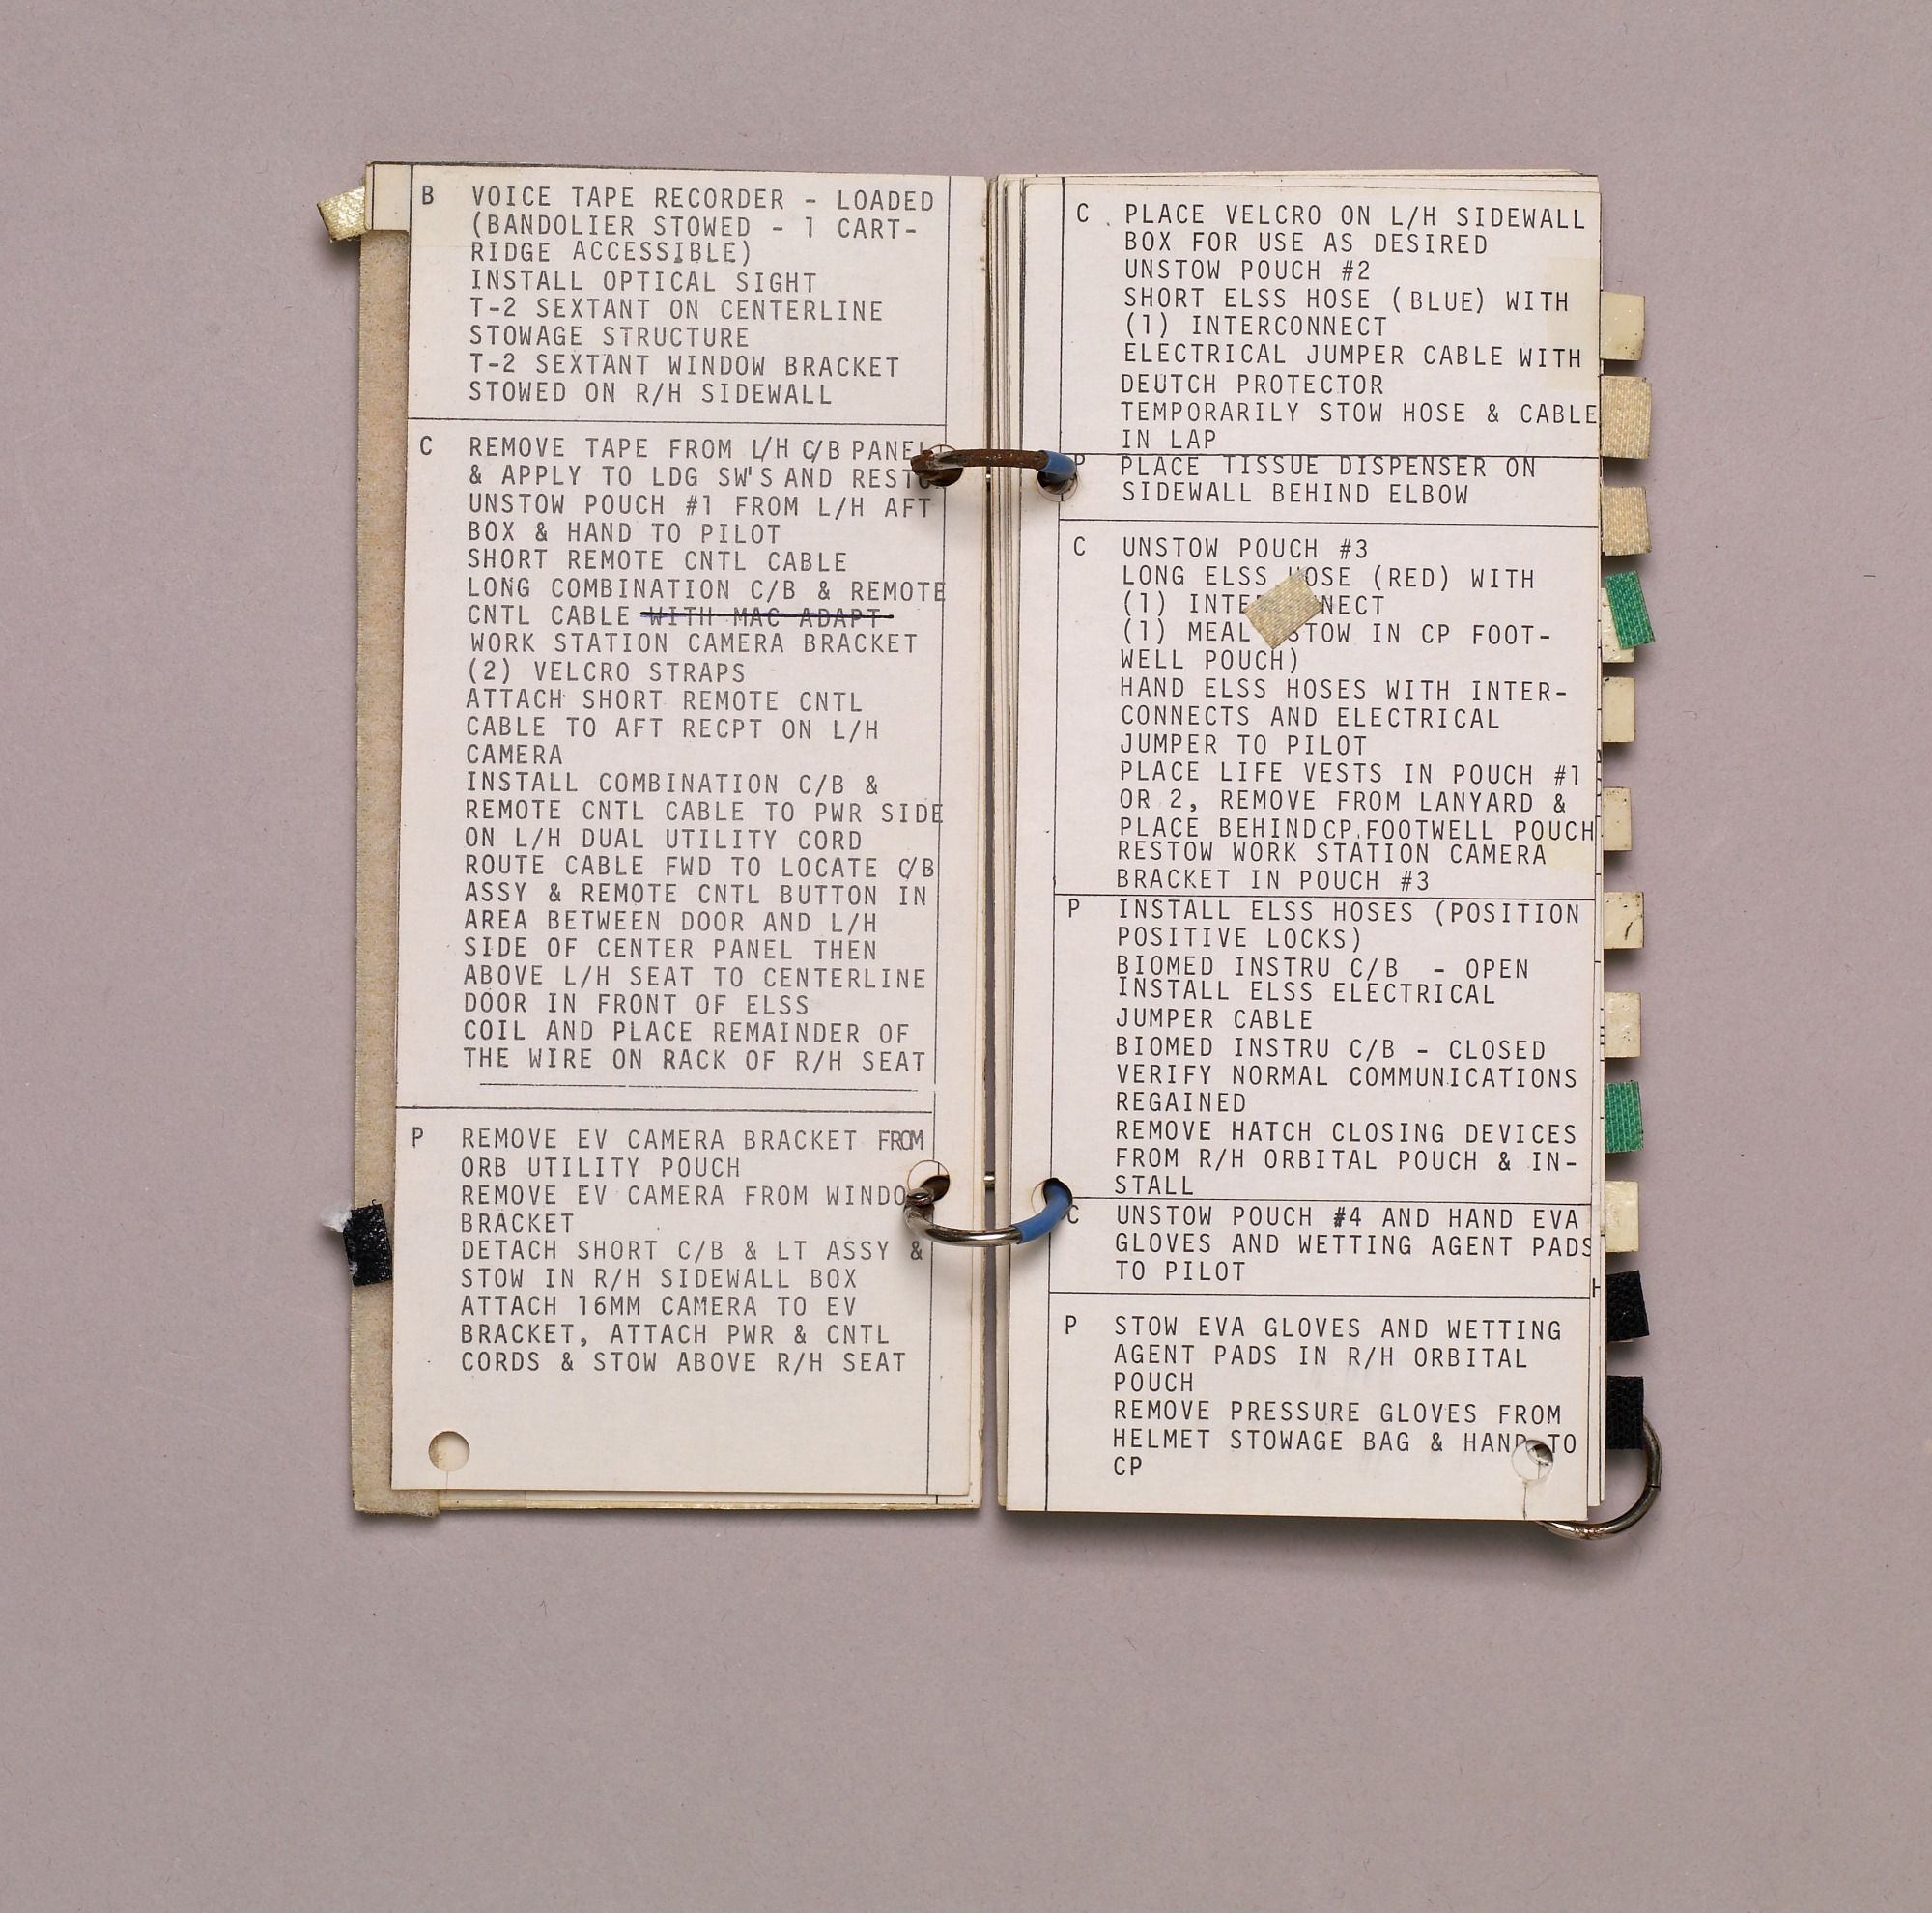 B VOICE TAPE RECORDER - LOADED
(BANDOLIER STOWED - 1 CART-
RIDGE ACCESSIBLE)
INSTALL OPTICAL SIGHT
T-2 SEXTANT ON CENTERLINE
STOWAGE STRUCTURE
T-2 SEXTANT WINDOW BRACKET
STOWED ON R/H SIDEWALL
C REMOVE TAPE FROM L/H C/B PANEL
& APPLY TO LDG SW'S AND
UNSTOW POUCH #1 FROM L/H AFT
BOX & HAND TO PILOT
SHORT REMOTE CNTL CABLE
LONG COMBINATION C/B & REMOTE
CNTL CABLE WITH MAC ADAPT
WORK STATION CAMERA BRACKET
(2) VELCRO STRAPS
ATTACH SHORT REMOTE CNTL
CABLE TO AFT RECPT ON L/H
CAMERA
INSTALL COMBINATION C/B &
REMOTE CNTL CABLE TO PWR SIDE
ON L/H DUAL UTILITY CORD
ROUTE CABLE FWD TO LOCATE C/B
ASSY & REMOTE CNTL BUTTON IN
AREA BETWEEN DOOR AND L/H
SIDE OF CENTER PANEL THEN
ABOVE L/H SEAT TO CENTERLINE
DOOR IN FRONT OF ELSS
COIL AND PLACE REMAINDER OF
THE WIRE ON RACK OF R/H SEAT
P REMOVE EV CAMERA BRACKET FROM
ORB UTILITY POUCH
REMOVE EV CAMERA FROM WINDOW
BRACKET
DETACH SHORT C/B & LT ASSY &
STOW IN R/H SIDEWALL BOX
ATTACH 16MM CAMERA TO EV
BRACKET, ATTACH PWR & CNTL
CORDS & STOW ABOVE R/H SEAT
C PLACE VELCRO ON L/H SIDEWALL
BOX FOR USE AS DESIRED
UNSTOW POUCH #2
SHORT ELSS HOSE (BLUE) WITH
(1) INTERCONNECT
ELECTRICAL JUMPER CABLE WITH
DEUTCH PROTECTOR
TEMPORARILY STOW HOSE & CABLE
IN LAP
P PLACE TISSUE DISPENSER ON
SIDEWALL BEHIND ELBOW
C UNSTOW POUCH #3
LONG ELSS HOSE (RED) WITH
(1) INTERCONNECT
(1) MEAL STOW IN CP FOOT-
WELL POUCH)
HAND ELSS HOSES WITH INTER-
CONNECTS AND ELECTRICAL
JUMPER TO PILOT
PLACE LIFE VESTS IN POUCH #1
OR 2, REMOVE FROM LANYARD &
PLACE BEHIND CP FOOTWELL POUCH
RESTOW WORK STATION CAMERA
BRACKET IN POUCH #3
P INSTALL ELSS HOSES (POSITION
POSITIVE LOCKS)
BIOMED INSTRU C/B - OPEN
INSTALL ELSS ELECTRICAL
JUMPER CABLE
BIOMED INSTRU C/B - CLOSED
VERIFY NORMAL COMMUNICATIONS
REGAINED
REMOVE HATCH CLOSING DEVICES
FROM R/H ORBITAL POUCH & IN-
STALL
C UNSTOW POUCH #4 AND HAND EVA
GLOVES AND WETTING AGENT PADS
TO PILOT
P STOW EVA GLOVES AND WETTING
AGENT PADS IN R/H ORBITAL
POUCH
REMOVE PRESSURE GLOVES FROM
HELMET STOWAGE BAG & HAND TO
CP